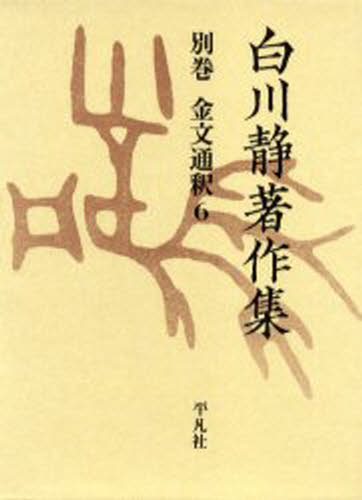 白川静著作集
別巻 金文通釈 6
平凡社